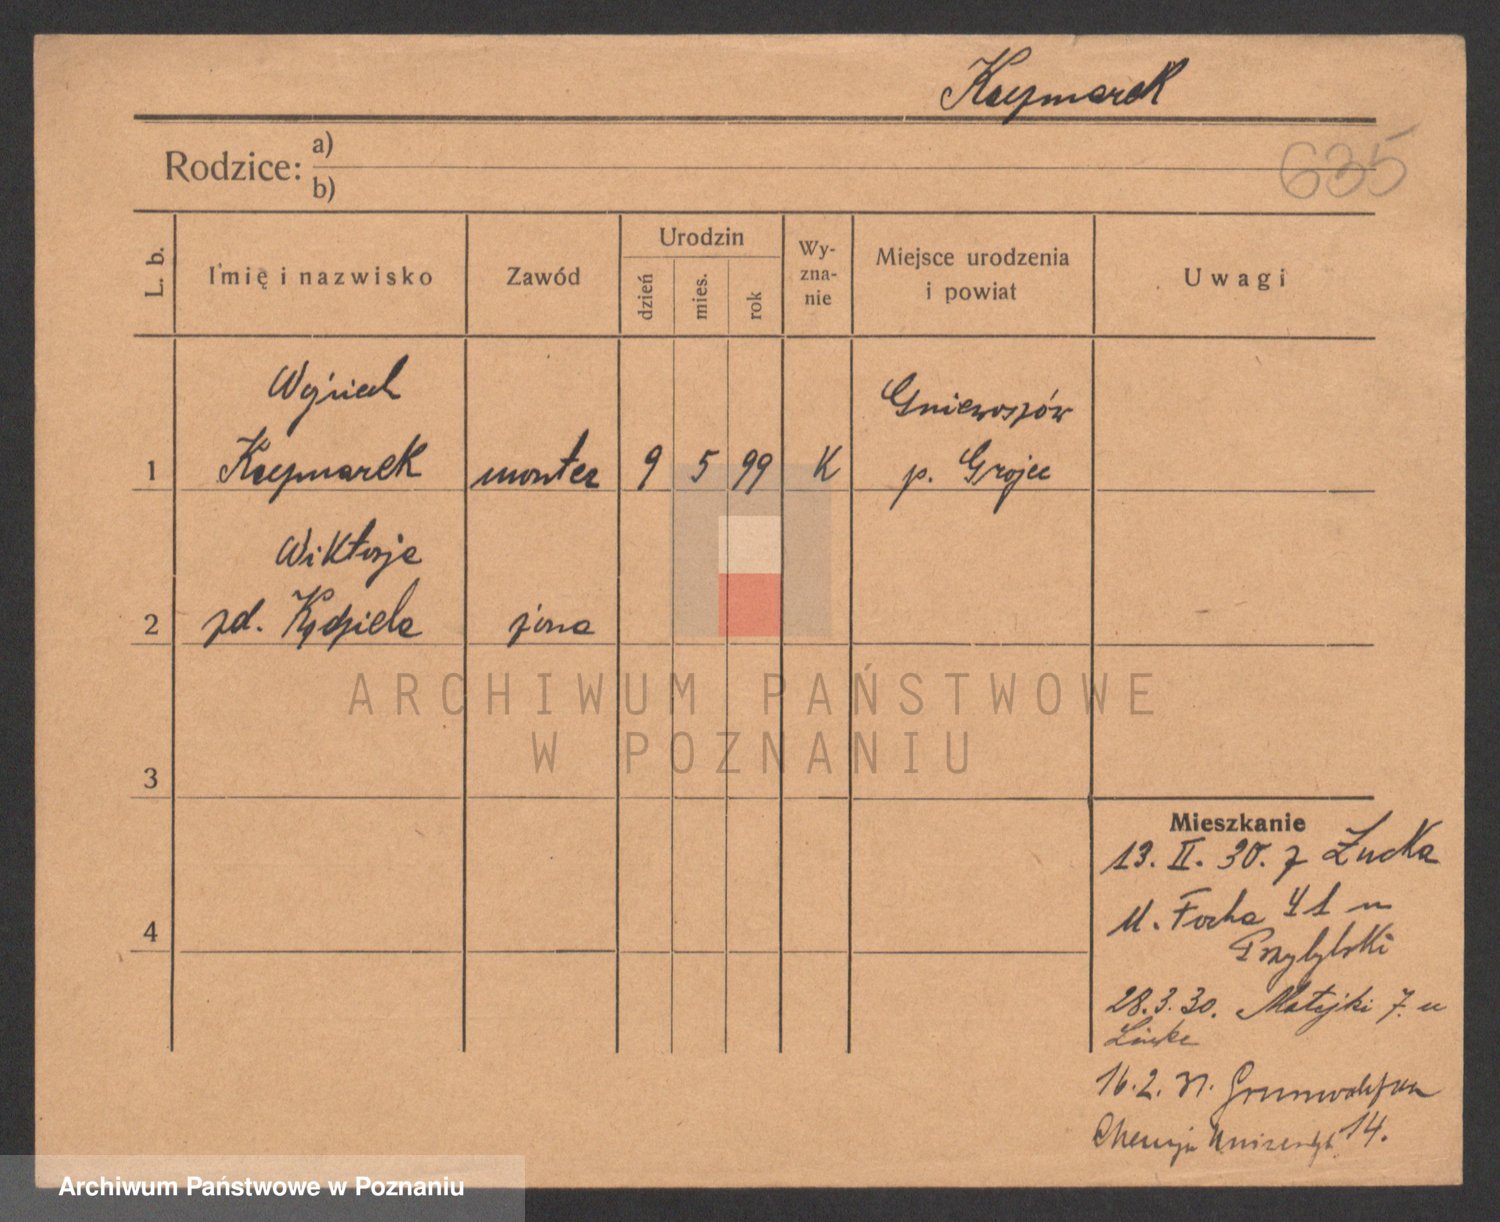 Kaczmarek
635
Rodzice: a)
b)
L. b.
Imię i nazwisko
Zawód
Urodzin
dzień
mies.
rok
Wy-
zna-
nie
Miejsce urodzenia
i powiat
Uwagi
Wojciech
Gniewoszów
1 Kaczmarek monter 9 5 99 K p. Grojec
Wiktorja
2 zd. Kędziela żona
ARCHIWUM PAŃSTWOWE
W POZNANIU
3
Mieszkanie
13. II. 30. z Łucka
M. Focha 41 u
4
Przybylski
28.3.30. Matejki 7. u
Linke
16.2.31.
14.
Archiwum Państwowe w Poznaniu